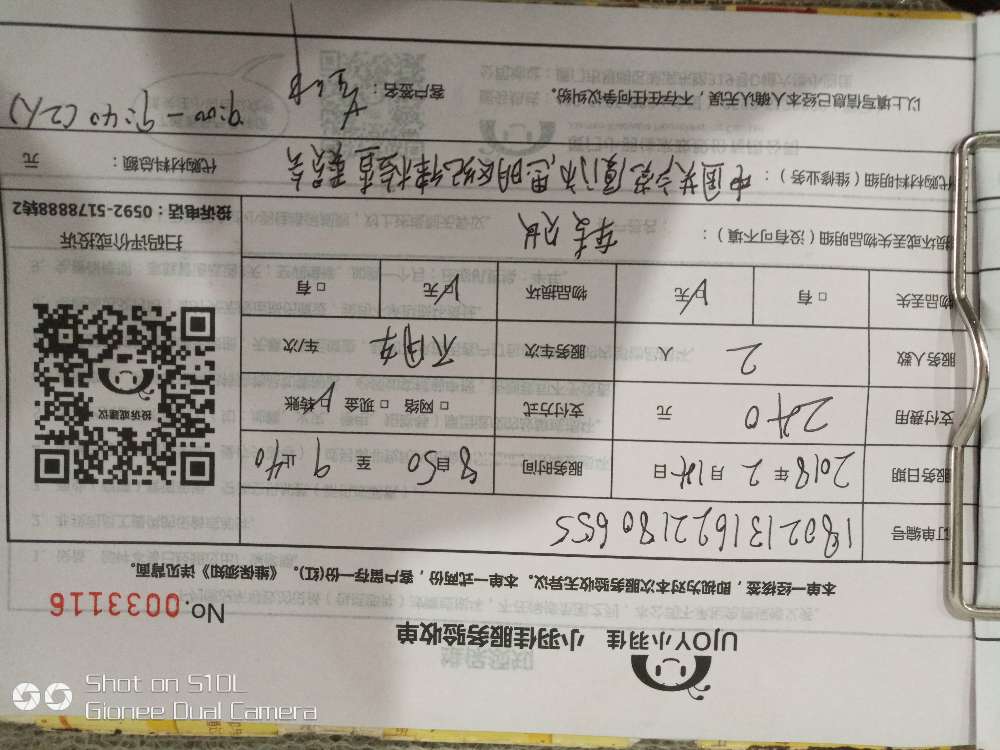 UJOY小羽佳 小羽佳服务验收单
No. 0033116
本单一经核签，即视为对本次服务验收无异议。本单一式两份，客户留存一份(红)。《维保须知》详见背面。
订单编号 180213162218 0655
服务日期 2018 年 2 月 14 日 服务时间 8 自 50 至 9 止 40
支付费用 240 元 支付方式 □ 网络 □ 现金 ☑ 转账
服务人数 2 人 服务车次 不用车 车/次
物品丢失 □ 有 ☑ 无 物品损坏 ☑ 无 □ 有
投诉或建议
扫码评价或投诉
投诉电话：0592-5178888转2
损坏或丢失物品明细（没有可不填）：
代购材料明细（维修业务）： 中国共产党厦门市思明区纪律检查委员会 代购材料总额： 元
以上填写信息已经本人确认无误，不存在任何争议纠纷。 客户签名：
9:00 - 9:40 (2人)
Shot on S10L
Gionee Dual Camera